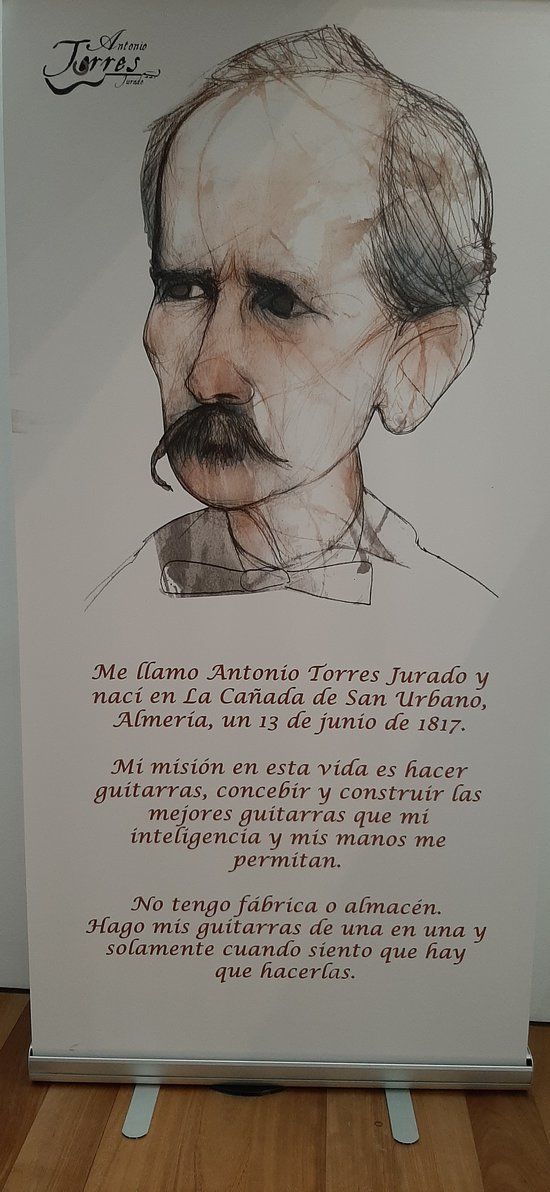 Antonio
Torres
Jurado
Me llamo Antonio Torres Jurado y
nací en La Cañada de San Urbano,
Almería, un 13 de junio de 1817.
Mi misión en esta vida es hacer
guitarras, concebir y construir las
mejores guitarras que mi
inteligencia y mis manos me
permitan.
No tengo fábrica o almacén.
Hago mis guitarras de una en una y
solamente cuando siento que hay
que hacerlas.